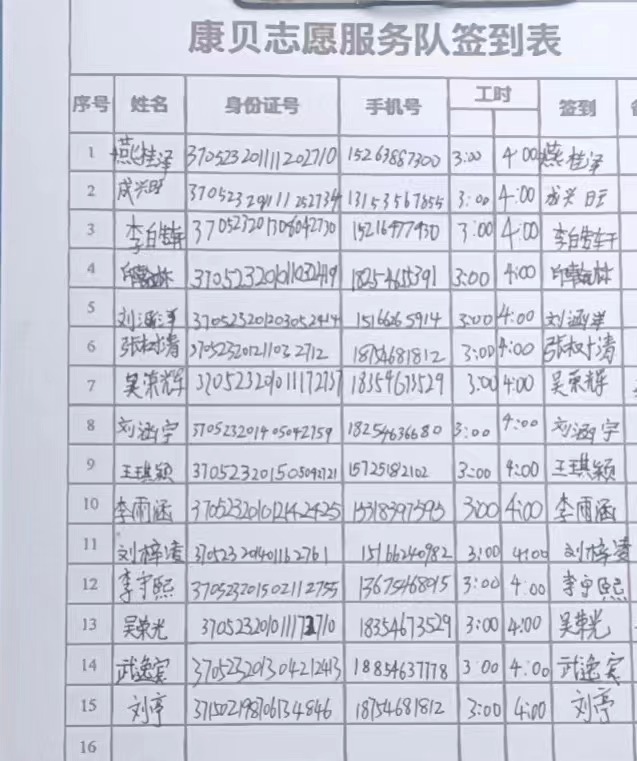 康贝志愿服务队签到表
序号 姓名 身份证号 手机号 工时 签到
1 燕桂泽 370523201111202710 15263887300 3:00 4:00 燕桂泽
2 成兴旺 13153567855 3:00 4:00 成兴旺
3 李白告轩 370523201308042730 15216977930 3:00 4:00 李白告轩
4 370523201011032419 18254655391 3:00 4:00
5 刘涵洋 370523201203052414 15166265914 3:00 4:00 刘涵洋
6 张树清 370523201211032712 18754681812 3:00 4:00 张树清
7 吴荣辉 370523201011172737 18354673529 3:00 4:00 吴荣辉
8 刘涵宇 370523201405042759 18254636680 3:00 4:00 刘涵宇
9 王琪颖 370523201505092721 15725182102 3:00 4:00 王琪颖
10 李雨涵 370523201012142425 15318397593 3:00 4:00 李雨涵
11 刘梓凌 370523201401162761 15166240982 3:00 4:00 刘梓凌
12 李宇熙 370523201502112755 13675468015 3:00 4:00 李宇熙
13 吴荣光 18354673529 3:00 4:00 吴荣光
14 武逸宾 370523201304212413 18854637778 3:00 4:00 武逸宾
15 刘亭 371502198706134846 18754681812 3:00 4:00 刘亭
16